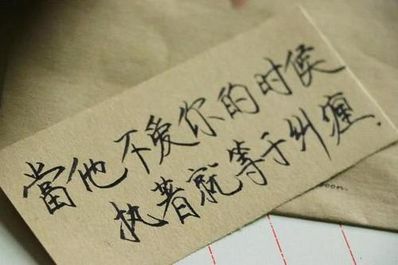 當他不爱你的时候
执著就等于纠缠.